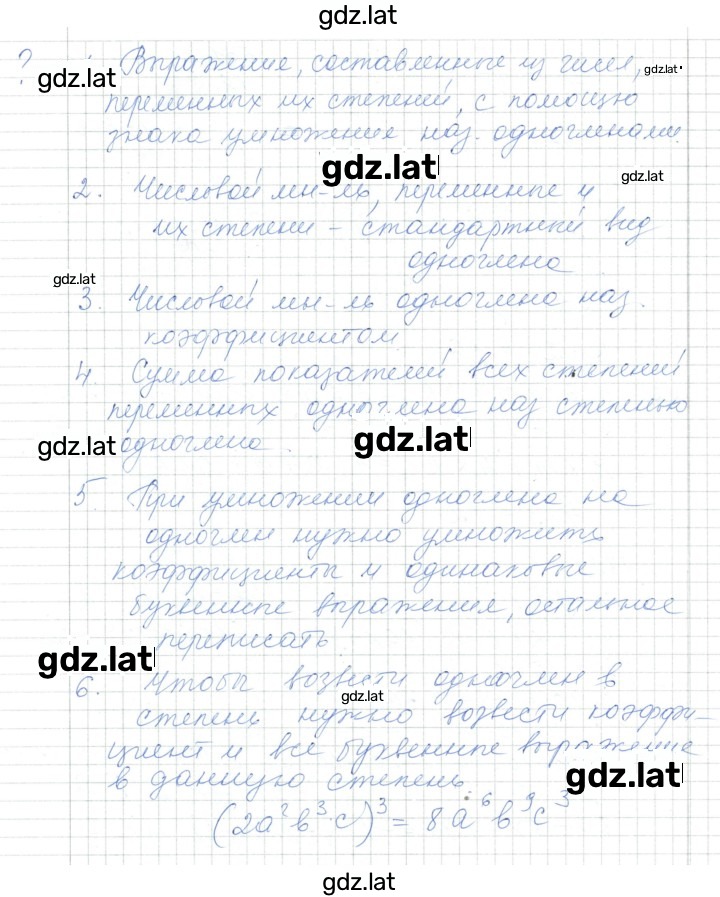 gdz.lat
? 1. Выражение, составленные из чисел,
gdz.lat gdz.lat
переменных их степеней, с помощью
знака умножение наз. одночленами.
gdz.lat gdz.lat
2. Числовой мн-ль, переменные и
их степени – стандартный вид
одночлена
gdz.lat
3. Числовой мн-ль одночлена наз.
коэффициентом
4. Сумма показателей всех степеней
переменных одночлена наз степенью
gdz.lat одночлена. gdz.lat
5. При умножении одночлена на
одночлен нужно умножить
коэффициенты и одинаковые
буквенные выражения, остальное
переписать
gdz.lat
6. Чтобы возвести одночлен в
gdz.lat
степень нужно возвести коэффи-
циент и все буквенные выражение
в данную степень.
gdz.lat
(2a²b³·c)³ = 8a⁶b⁹c³
gdz.lat